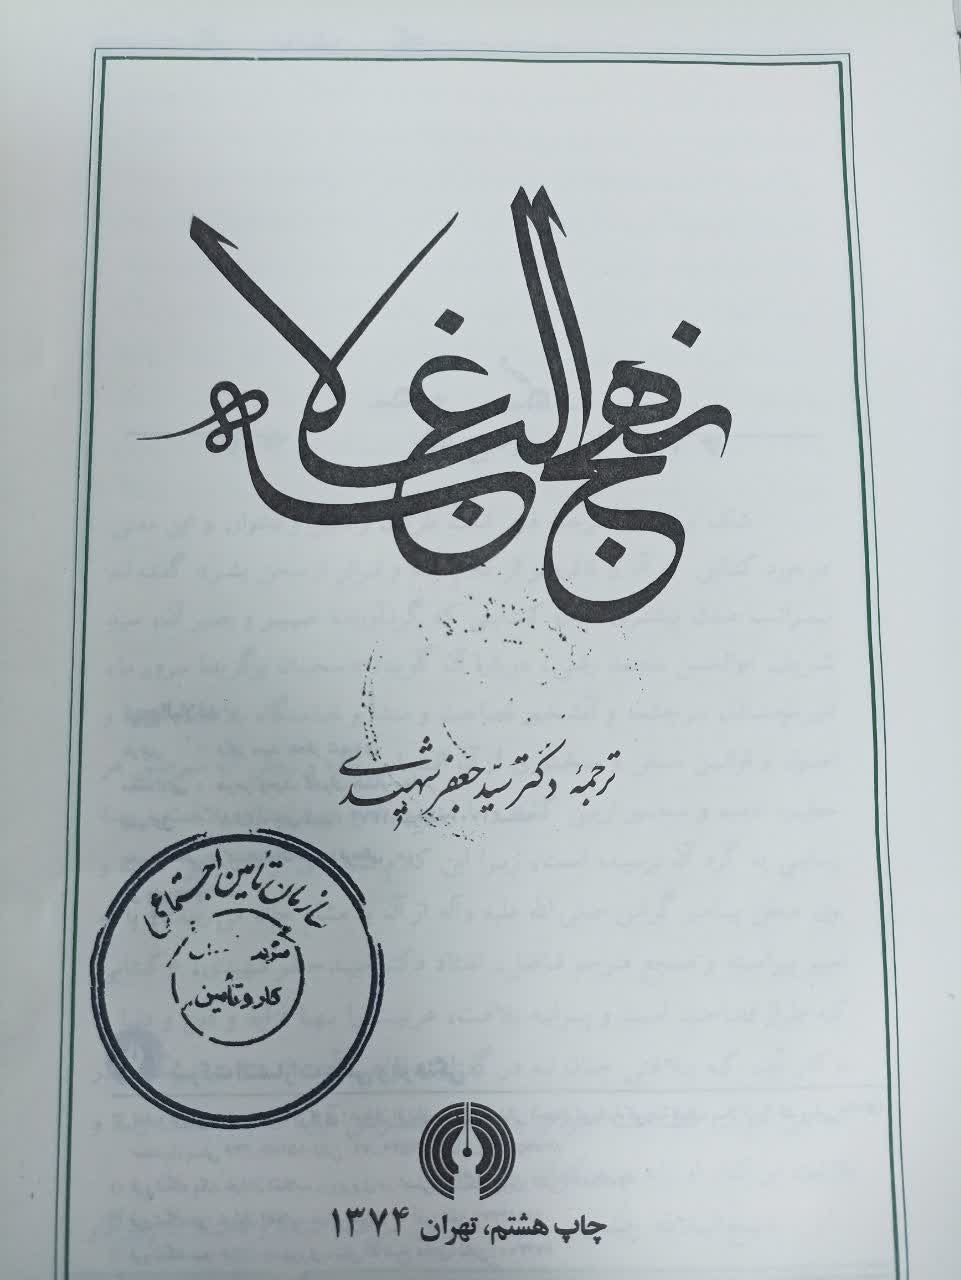 نهج البلاغه
ترجمهٔ دکتر سیّد جعفر شهیدی
سازمان تأمین اجتماعی
کار و تأمین
چاپ هشتم، تهران ۱۳۷۴